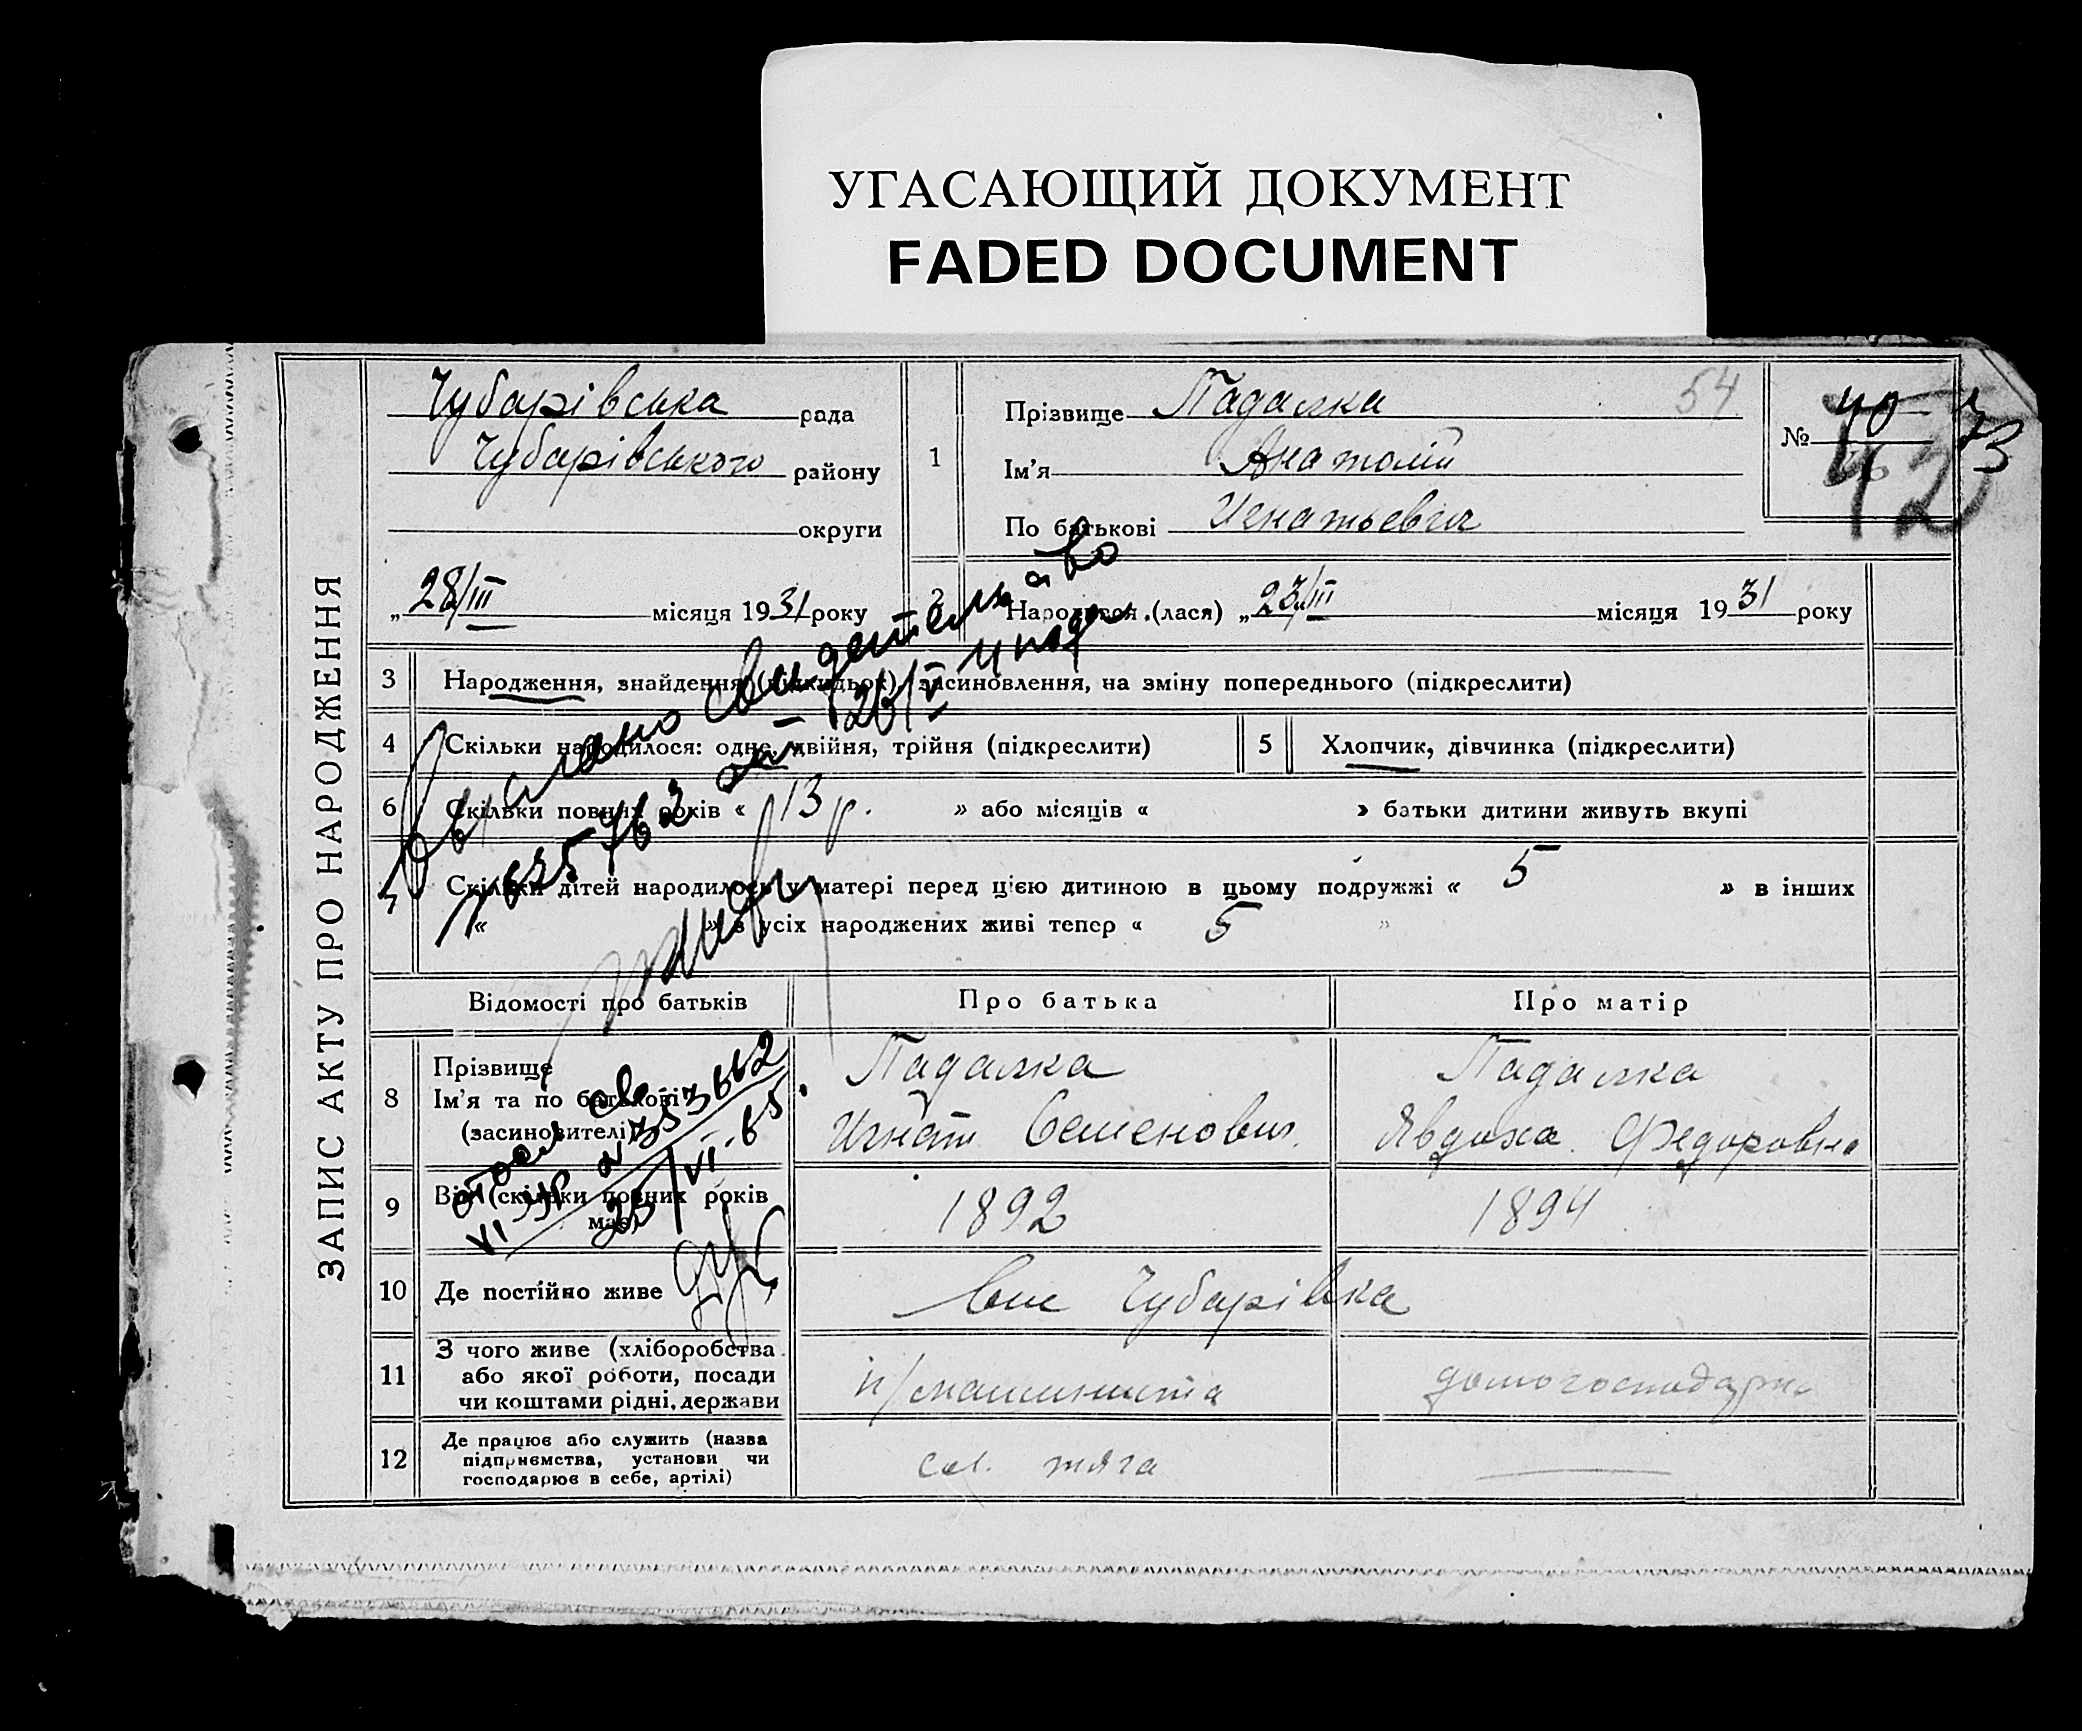 УГАСАЮЩИЙ ДОКУМЕНТ
FADED DOCUMENT
ЗАПИС АКТУ ПРО НАРОДЖЕННЯ
Чубарівська рада
Чубарівського району
округи
„ 28/III місяця 1931 року
1
Прізвище Падалка 54
Ім’я Анатолій
По батькові Игнатьевич
№ 40
42
73
2 Народився (лася) „ 23/III місяця 1931 року
3 Народження, знайдення (підкидьок), засиновлення, на зміну попереднього (підкреслити)
4 Скільки народилося: одне, двійня, трійня (підкреслити)
5 Хлопчик, дівчинка (підкреслити)
6 Скільки повних років « 13 р. » або місяців « » батьки дитини живуть вкупі
7 Скільки дітей народилось у матері перед цією дитиною в цьому подружжі « 5 » в інших
« » з усіх народжених живі тепер « 5 »
Выслано свидетельство
26/V
Відомості про батьків
Про батька
Про матір
8 Прізвище
Ім’я та по батькові
(засиновителі)
Падалка
Игнат Семенович
Падалка
Явдоха Федоровна
353662
25/VI-65.
9 Вік (скільки повних років
має)
1892
1894
10 Де постійно живе
Чубарівка
11 З чого живе (хліборобства
або якої роботи, посади
чи коштами рідні, держави
п/машиниста
домогосподарка
12 Де працює або служить (назва
підприємства, установи чи
господарює в себе, артілі)
тяга